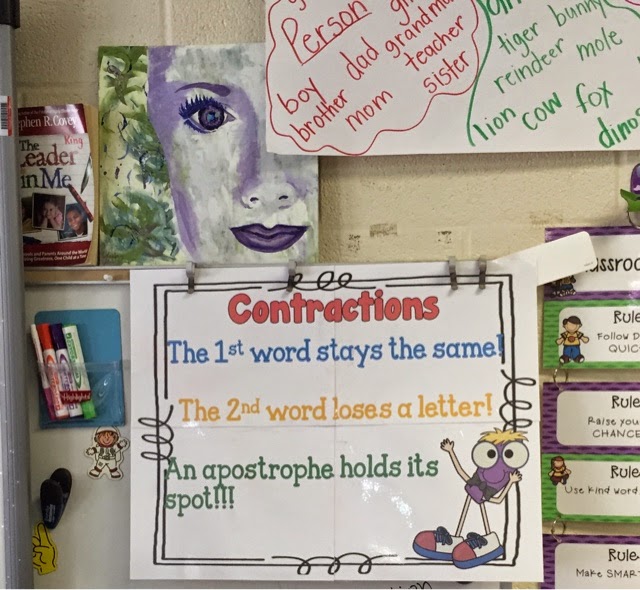 Person
boy dad grandma
brother mom teacher
sister
tiger bunny
reindeer mole
lion cow fox
phen R. Covey
The King
Leader
in Me
Contractions
The 1st word stays the same!
The 2nd word loses a letter!
An apostrophe holds its
spot!!!
Highlighter
assroo
Rule
Follow D
QUIC
Rule
Raise you
CHANCE
Rule
Use kind word
Rule
Make SMAR